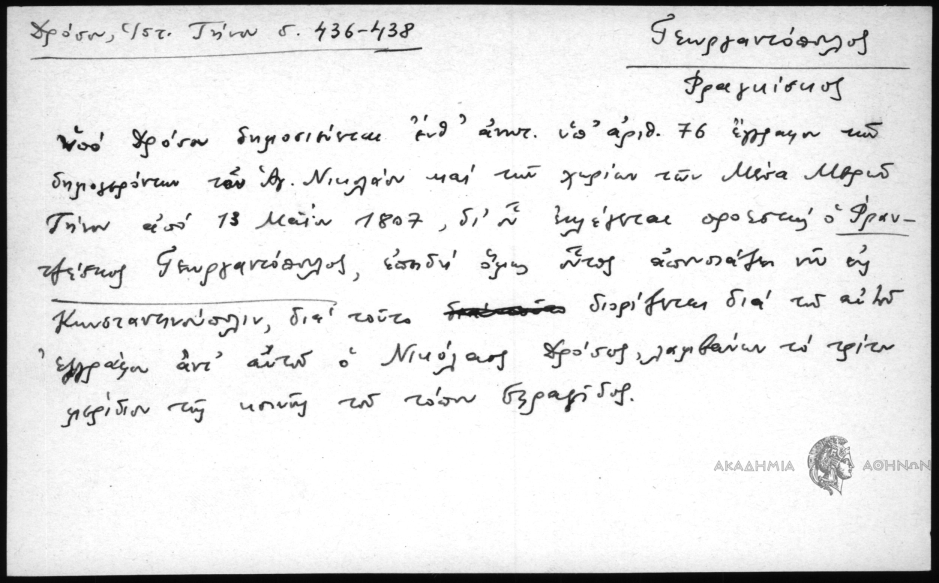 Δρόσου, Ἱστ. Τήνου σ. 436-438
Γεωργαντόπουλος
Φραγκίσκος
Ὑπό Δρόσου δημοσιεύεται ἔνθ' ἀνωτ. ὑπ' ἀριθ. 76 ἔγγραφον τῶν
δημογερόντων τοῦ Ἁγ. Νικολάου καί τῶν χωρίων τῶν Μέσα Μεριῶ
Τήνου ἀπό 13 Μαΐου 1807, δι' οὗ ἐκλέγεται προεστώς ὁ Φραν-
τζέσκος Γεωργαντόπουλος, ἐπειδή ὅμως οὗτος ἀπουσιάζει νῦν εἰς
Κωνσταντινούπολιν, διά τοῦτο διορίζεται διά τοῦ αὐτοῦ
ἐγγράφου ἀντ' αὐτοῦ ὁ Νικόλαος Δρόσος, λαμβάνων τό τρίτον
μερίδιον τῆς κοινῆς τοῦ τόπου σφραγίδος.
ΑΚΑΔΗΜΙΑ ΑΘΗΝΩΝ